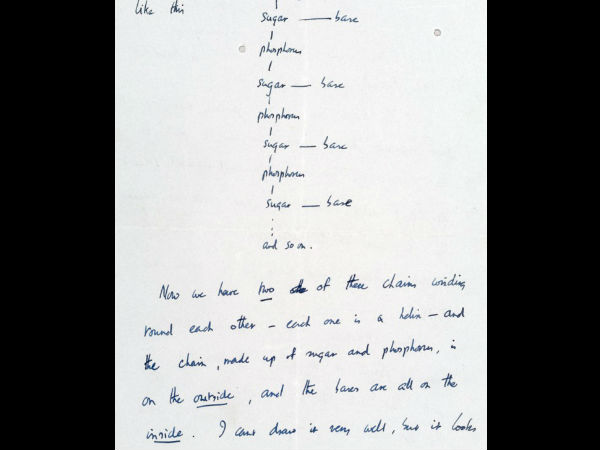 like this
sugar — base
phosphorus
sugar — base
phosphorus
sugar — base
phosphorus
sugar — base
and so on.
Now we have two of these chains winding
round each other — each one is a helix — and
the chain, made up of sugar and phosphorus, is
on the outside, and the bases are all on the
inside. I can't draw it very well, but it looks